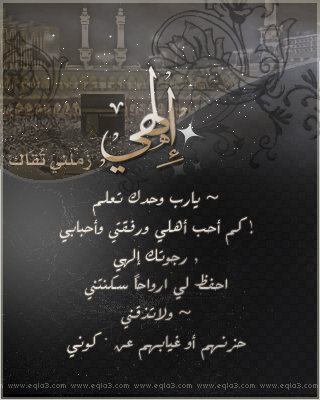 إلهي
زملني تُقاك
~ يارب وحدك تعلم
كم أحب أهلي ورفقتي وأحبابي !
, رجوتك إلهي
احفظ لي ارواحاً سكنتني
~ ولاتذقني
حزنهم أو غيابهم عن كوني
www.eqla3.com www.eqla3.com www.eqla3.com www.eqla3.com www.eqla3.com